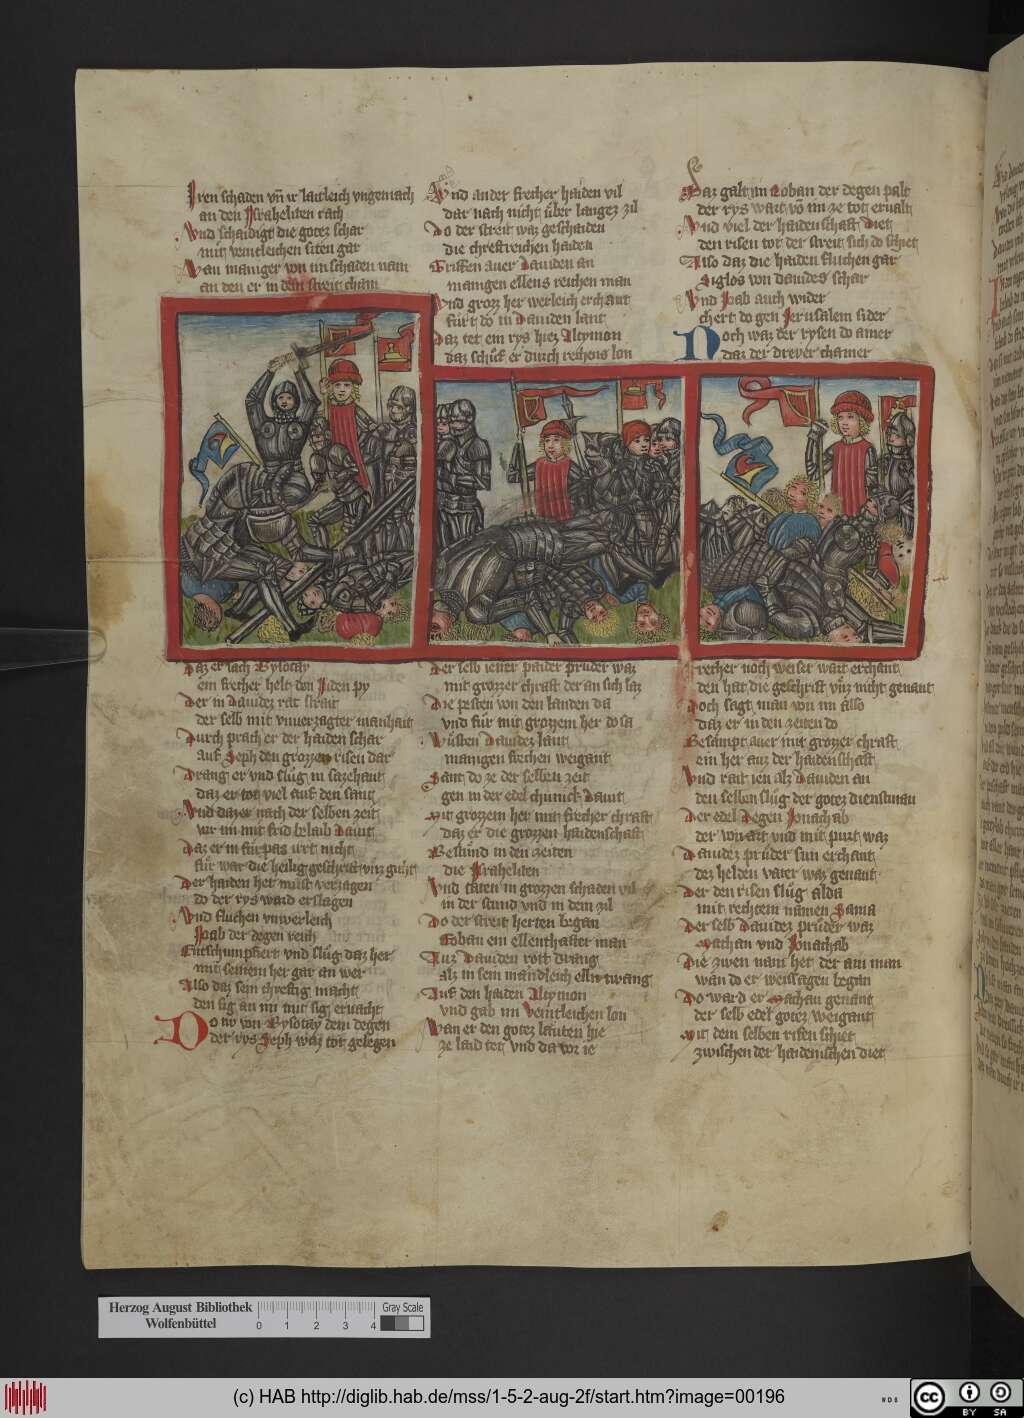 Iren schaden vn̄ ir laitleich vngemach
an den Israheliten rach
Vnd schaidigt die gotez schar
mit veintleichen siten gar
Wan maniger von im schaden nam
an den er in dem streit cham
Daz er sach Bysotay
ein frecher helt don Iuden py
Der in Dauidez rat strait
der selb mit vnuerzagter manhait
Durch prach er der haiden schar
auf Seph den grozzen risen dar
Drang er vnd slug in sazehant
daz er tot viel auf den sant
Vnd dazer nach der selben zeit
vor im mit frid belaib Dauit
Daz er in fürpas irt nicht
für war die heilig geschrift vnz giht
Der haiden her must verzagen
do der rys ward erslagen
Vnd fluchen vnwerleich
Ioab der degen reich
Entschumpfiert vnd slug daz her
mit seinem her gar an wer
Also daz sein chreftig macht
den sig an im mit sig eruacht
Do nv von Bysotay dem degen
der rys Seph waz tot gelegen
Vnd ander frecher haiden vil
dar nach nicht über langez zil
Do der streit waz geschaiden
die chreftreichen haiden
Griffen auer Dauiden an
manigen ellens reichen man
Vnd grozz her werleich erchant
fürt do in Dauiden lant
Daz tet ein rys hiez Altymon
daz schuf er durch rechens lon
Der selb iener paider pruder waz
mit grozzer chraft der an sich laz
Die pesten von den landen da
vnd für mit grozzem her do sa
Wüsten Dauidez lant
manigen frechen weigant
Sant do ze der selben zeit
gen in der edel chunick Dauit
Mit grozzem her mit frecher chraft
daz er die grozzen haidenschaft
Bestund in den zeiten
die Israheliten
Vnd taten in grozzen schaden vil
in der stund vnd in dem zil
Do der streit herten began
Coban ein ellenthafter man
Auz Dauiden rott drang
alz in sein mandleich ellen twang
Auf den haiden Altymon
vnd gab im veintleichen lon
Wan er den gotez lauten hie
ze laid tet vnd da vor ie
Daz galt im Coban der degen palt
der rys wart vō im ze tot erualt
Vnd viel der haidenschaft diet
den risen tot der streit sich do schiet
Also daz die haiden fluchen gar
Siglos von Dauides schar
Vnd Ioab auch wider
chert do gen Jerusalem sider
Noch waz der rysen do ainer
daz der dreyer chainer
frecher noch weiser wart erchant
den hat die geschrift vnz nicht genant
Doch sagt man von im also
daz er in den zeiten do
Besampt auer mit grozzer chraft
ein her auz der haidenschaft
Vnd rait ien alz Dauiden an
den selben slug der gotez dienstman
Der edel Degen Jonachab
der von art vnd mit purt waz
Dauidez pruder sun erchant
dez helden vater waz genant
Der den risen slug alda
mit rechtem namen Sama
Der selb Dauidez pruder waz
Nathan vnd Jonachab
Die zwen nam het der ain man
wan do er weissagen began
Do ward er Nathan genant
der selb edel gotez weigant
Mit dem selben risen schiet
zwischen der haidenischen diet
Herzog August Bibliothek
Wolfenbüttel
0 1 2 3 4
Gray Scale
(c) HAB http://diglib.hab.de/mss/1-5-2-aug-2f/start.htm?image=00196
WDB
CC BY SA